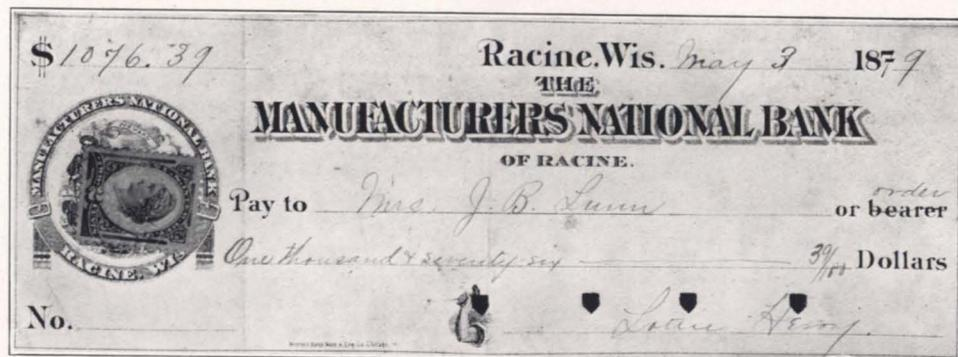 $1076.39 Racine. Wis. May 3 1879
THE
MANUFACTURERS NATIONAL BANK
OF RACINE.
MANUFACTURERS NATIONAL BANK
RACINE, WIS
Pay to Mrs. J. B. Lunn or bearer order
One thousand & seventy-six 39/100 Dollars
No.
Henry.